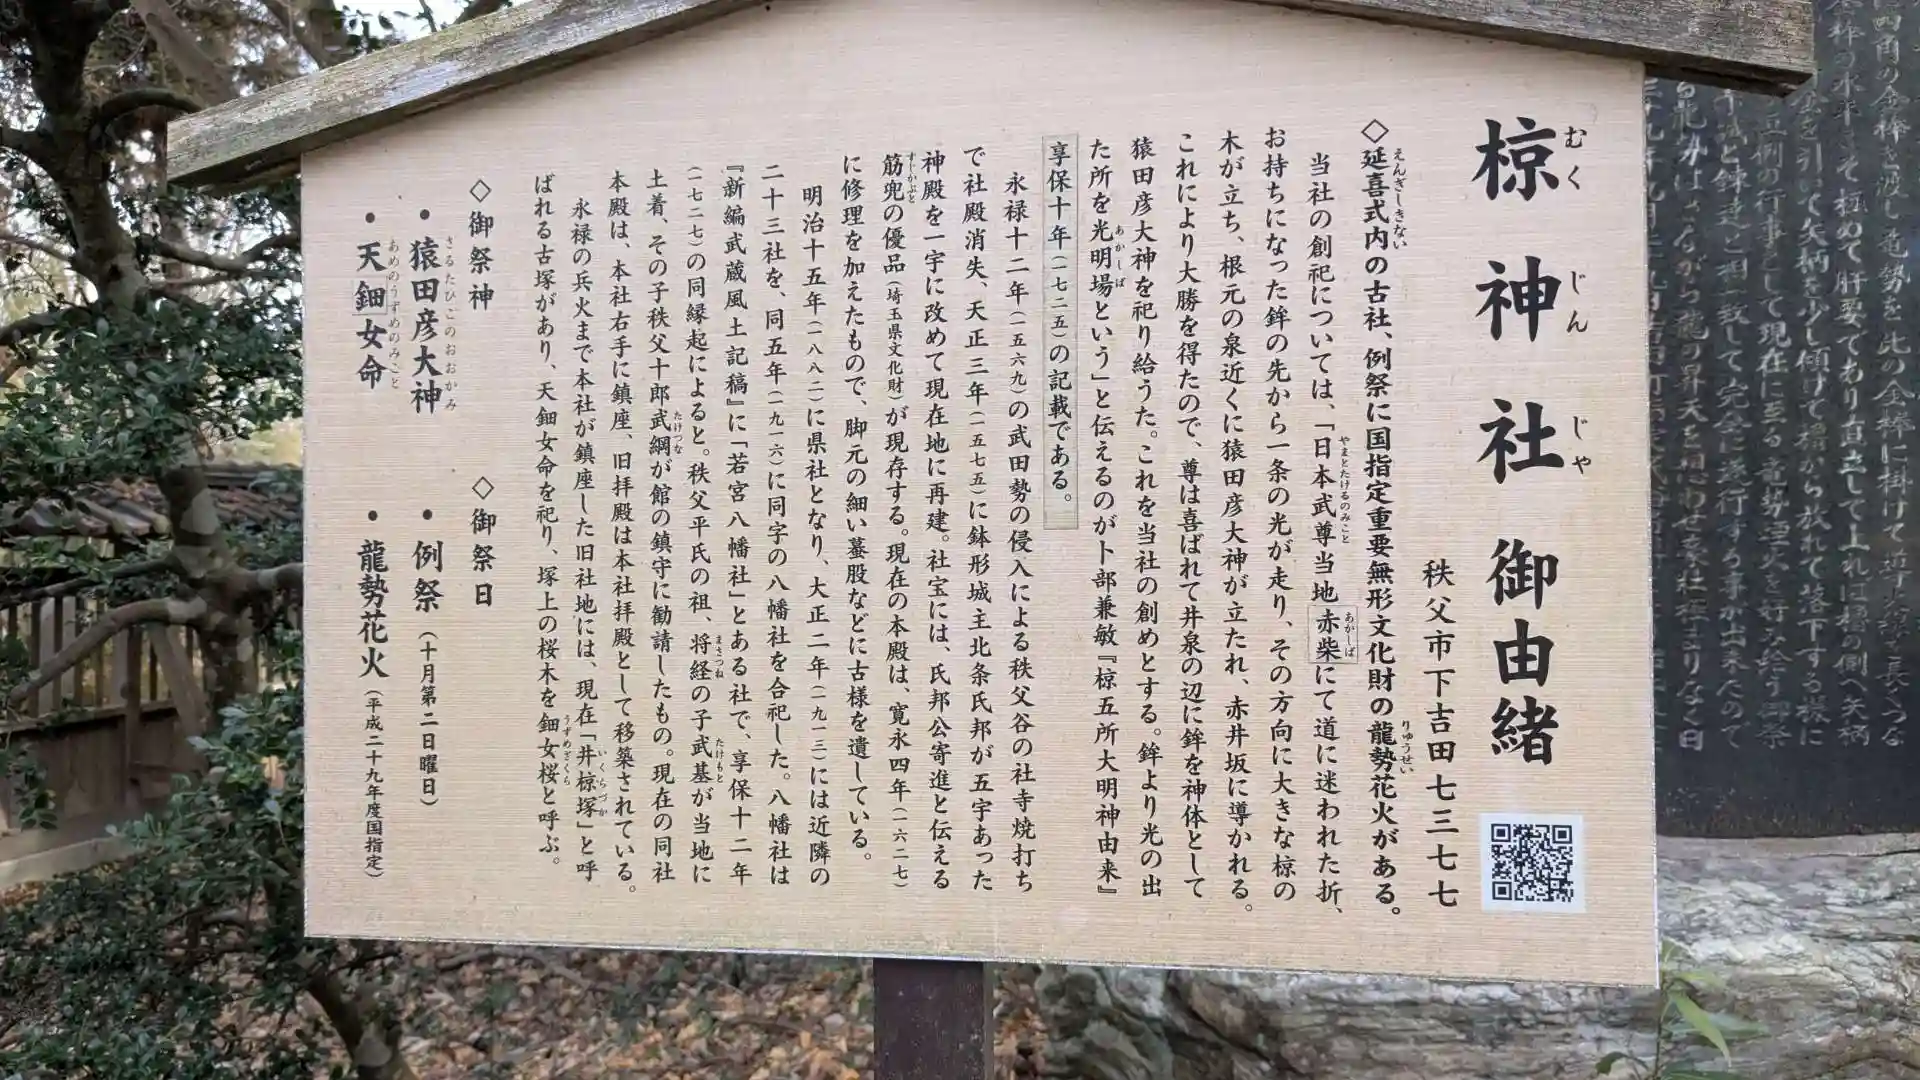 椋神社御由緒
むく じん じゃ
秩父市下吉田七三七七
◇延喜式内の古社、例祭に国指定重要無形文化財の龍勢花火がある。
えんぎしきない りゅうせい
当社の創祀については、「日本武尊当地赤柴にて道に迷われた折、
やまとたけるのみこと あかしば
お持ちになった鉾の先から一条の光が走り、その方向に大きな椋の
木が立ち、根元の泉近くに猿田彦大神が立たれ、赤井坂に導かれる。
これにより大勝を得たので、尊は喜ばれて井泉の辺に鉾を神体として
猿田彦大神を祀り給うた。これを当社の創めとする。鉾より光の出
た所を光明場という」と伝えるのが卜部兼敏『椋五所大明神由来』
あかしば
享保十年(一七二五)の記載である。
永禄十二年(一五六九)の武田勢の侵入による秩父谷の社寺焼打ち
で社殿消失、天正三年(一五七五)に鉢形城主北条氏邦が五宇あった
神殿を一宇に改めて現在地に再建。社宝には、氏邦公寄進と伝える
筋兜の優品(埼玉県文化財)が現存する。現在の本殿は、寛永四年(一六二七)
すじかぶと
に修理を加えたもので、脚元の細い蟇股などに古様を遺している。
明治十五年(一八八二)に県社となり、大正二年(一九一三)には近隣の
二十三社を、同五年(一九一六)に同字の八幡社を合祀した。八幡社は
『新編武蔵風土記稿』に「若宮八幡社」とある社で、享保十二年
(一七二七)の同縁起によると。秩父平氏の祖、将経の子武基が当地に
まさつね たけもと
土着、その子秩父十郎武綱が館の鎮守に勧請したもの。現在の同社
たけつな
本殿は、本社右手に鎮座、旧拝殿は本社拝殿として移築されている。
永禄の兵火まで本社が鎮座した旧社地には、現在「井椋塚」と呼
いくらづか
ばれる古塚があり、天鈿女命を祀り、塚上の桜木を鈿女桜と呼ぶ。
うずめざくら
◇御祭神
・猿田彦大神
さるたひこのおおかみ
・天鈿女命
あめのうずめのみこと
◇御祭日
・例祭(十月第二日曜日)
・龍勢花火(平成二十九年度国指定)